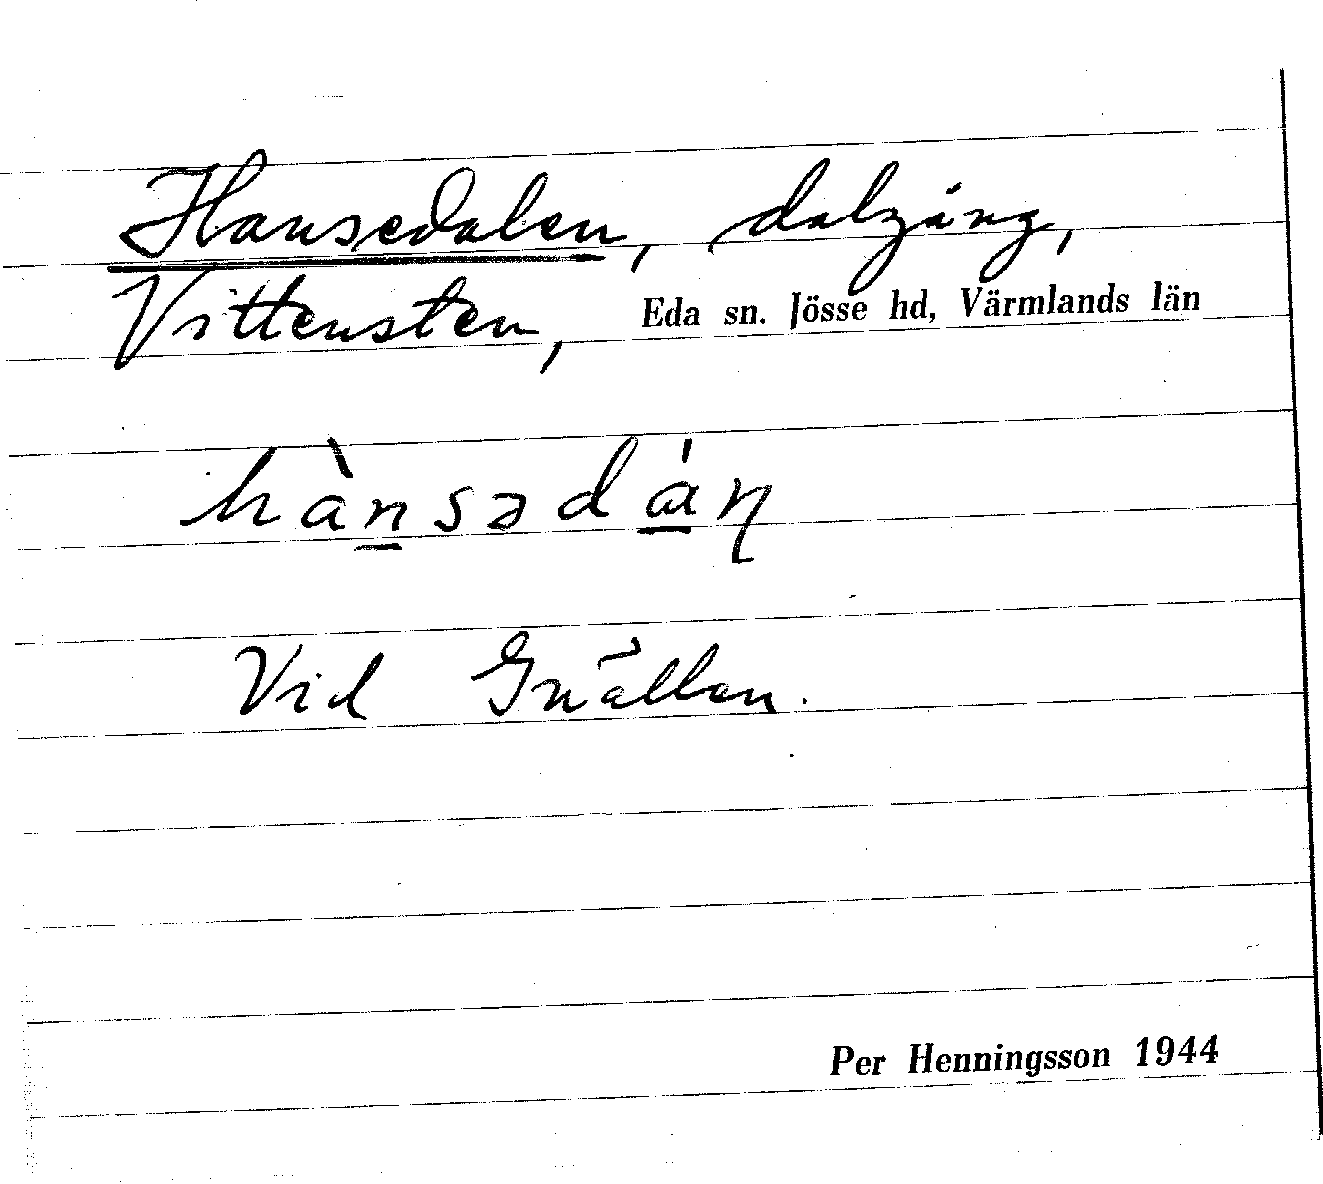 Hansedalen, dalgång,
Vittensten, Eda sn. Jösse hd, Värmlands län
hànsədáṇ
Vid Gnällan.
Per Henningsson 1944